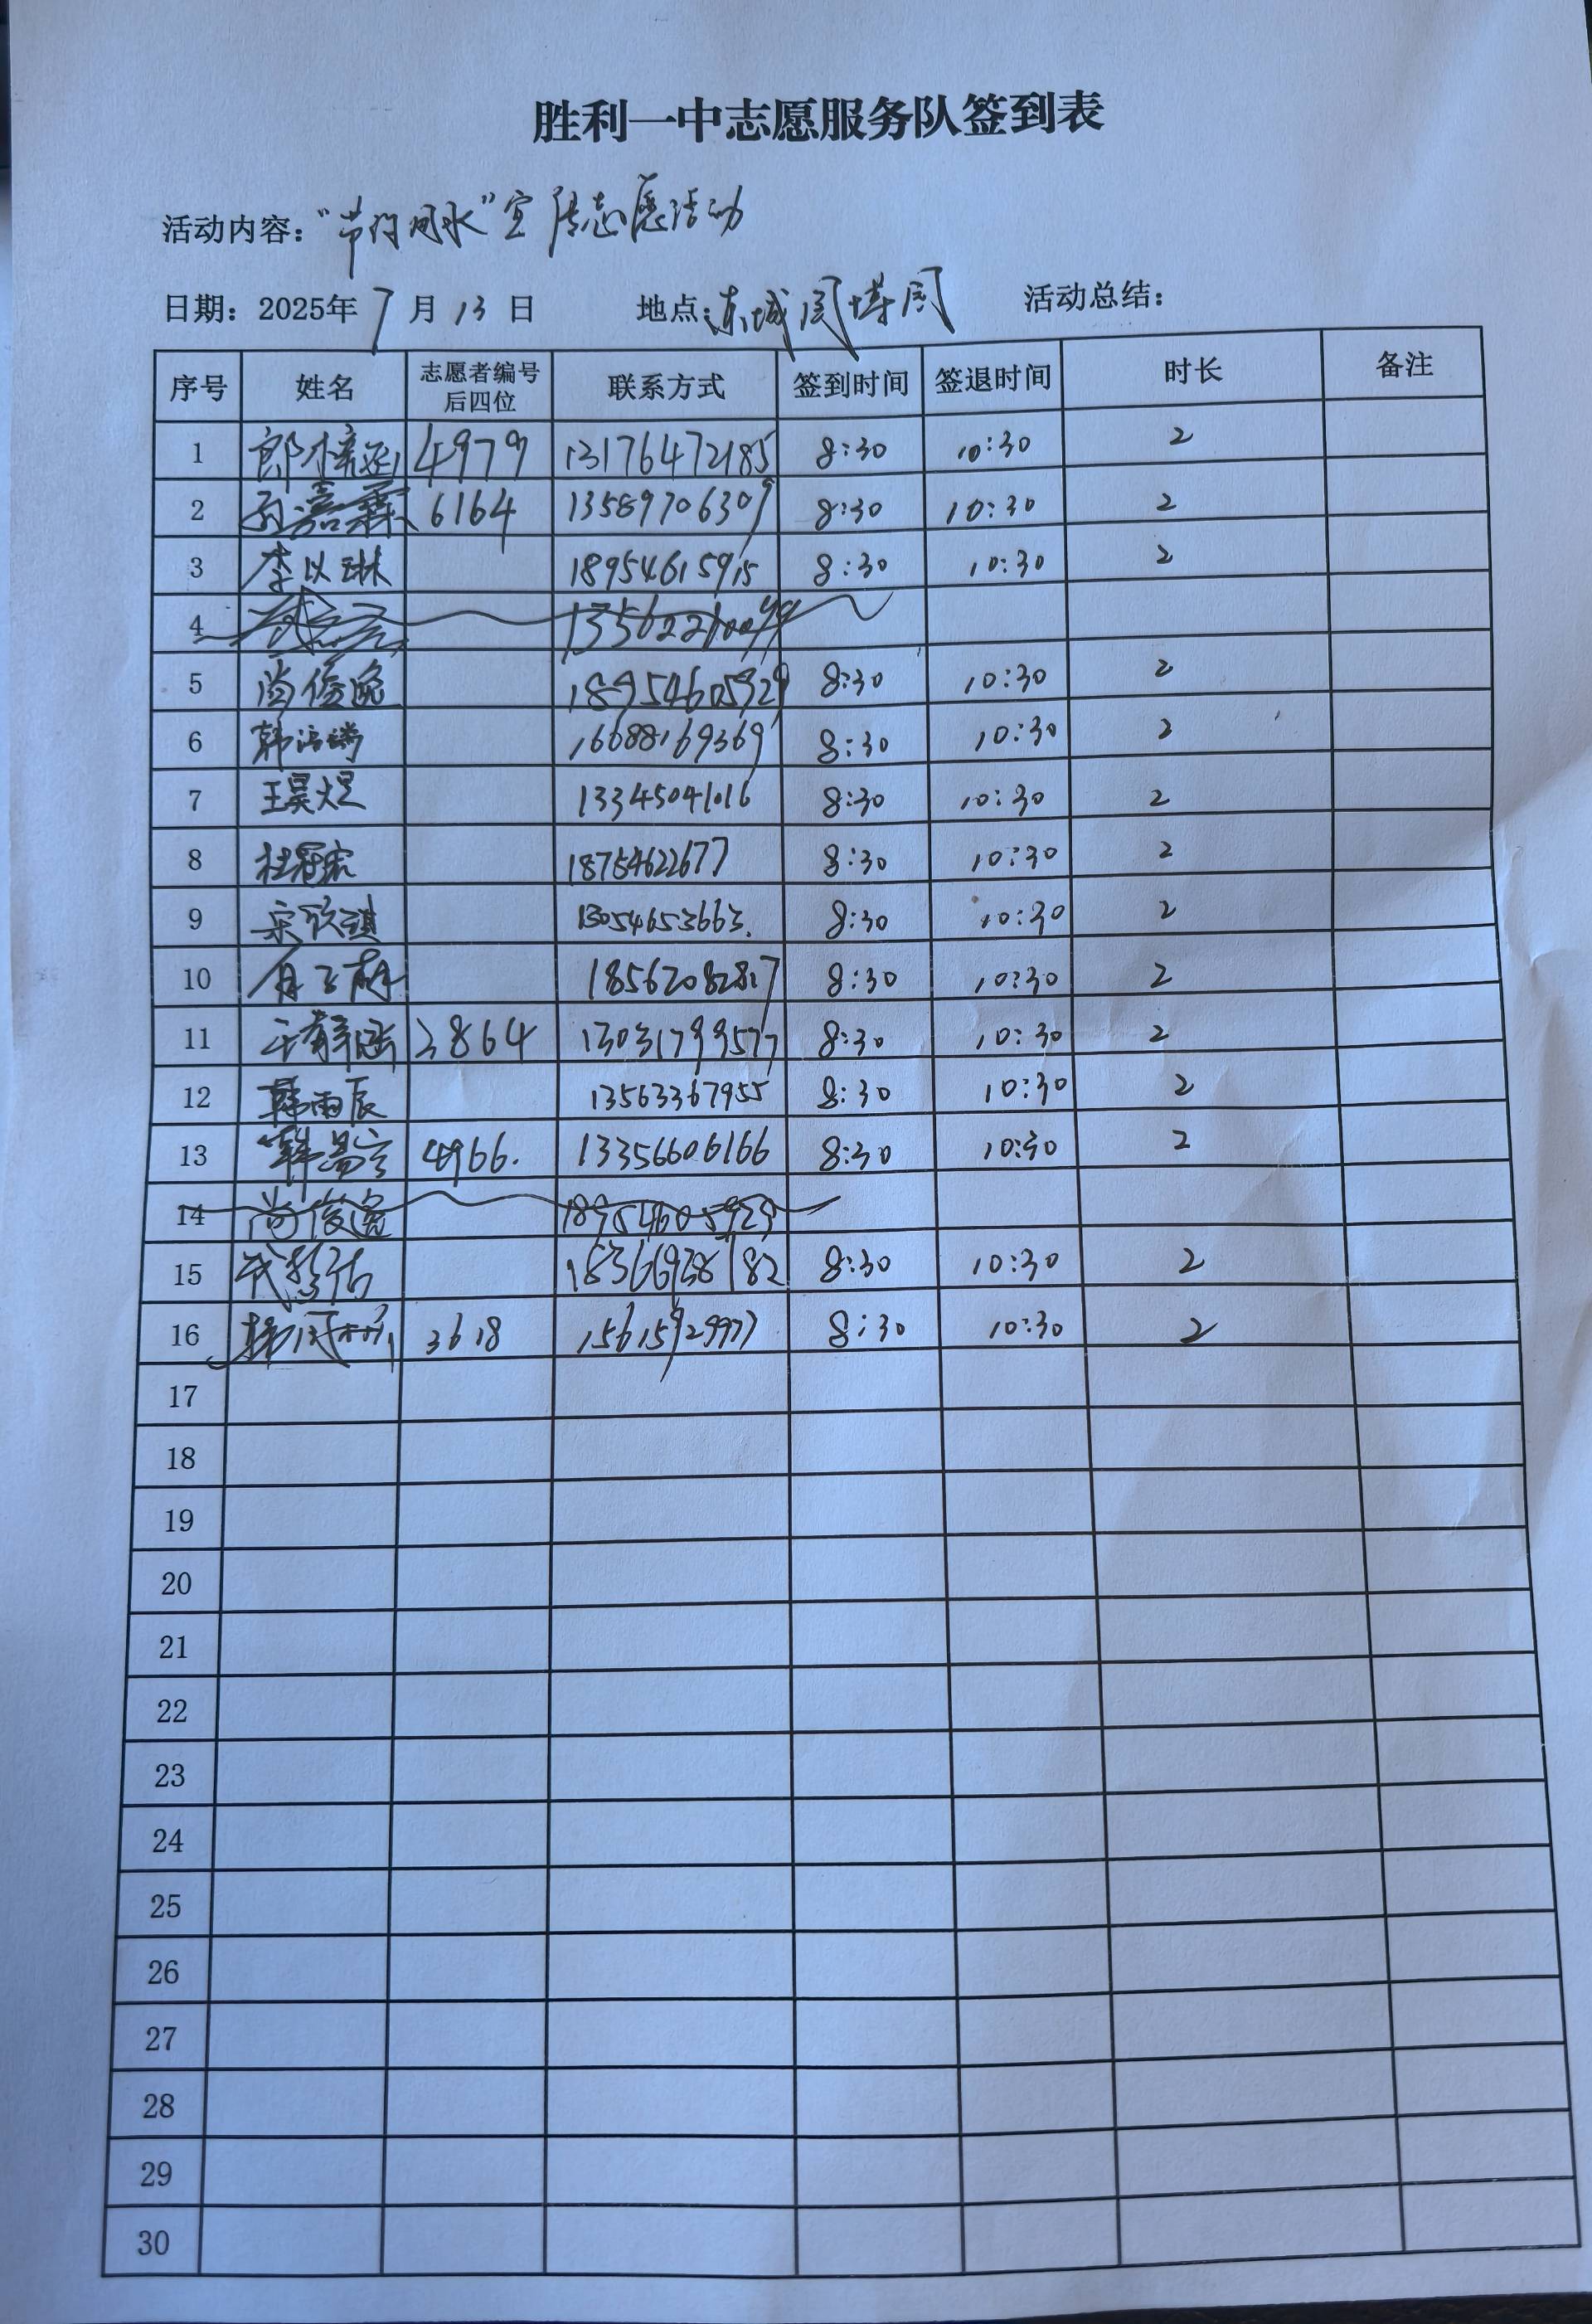 胜利一中志愿服务队签到表
活动内容：“节约用水”宣传志愿活动
日期：2025年7月13日 地点：东城 活动总结：
序号 姓名 志愿者编号后四位 联系方式 签到时间 签退时间 时长 备注
1 4979 13176472185 8:30 10:30 2
2 孙嘉霖 6164 13589706309 8:30 10:30 2
3 李以琳 18954615915 8:30 10:30 2
4
5 尚俊逸 18954605929 8:30 10:30 2
6 16688169369 8:30 10:30 2
7 王昊煜 13345041016 8:30 10:30 2
8 杜冠宏 18754622677 8:30 10:30 2
9 宋欣琪 13054653663. 8:30 10:30 2
10 18562082817 8:30 10:30 2
11 于静涵 3864 13031799577 8:30 10:30 2
12 韩雨辰 13563367955 8:30 10:30 2
13 韩昌宇 4966. 13356606166 8:30 10:30 2
14 尚俊逸 18954605929
15 18366938182 8:30 10:30 2
16 3618 15615929977 8:30 10:30 2
17
18
19
20
21
22
23
24
25
26
27
28
29
30